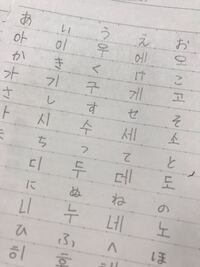 あ い う え お
아 이 우 에 오
か き く け こ
가 기 구 게 고
さ し す せ そ
시 수 세 소
ち つ て と
디 두 데 도
に ぬ ね の
니 누 네 노
ひ ふ へ ほ
히